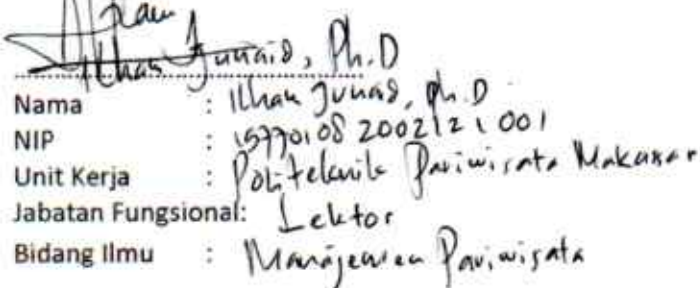 Ilham Junaid, Ph.D
Nama : Ilham Junaid, Ph.D
NIP : 19770108 200212 1 001
Unit Kerja : Politeknik Pariwisata Makassar
Jabatan Fungsional: Lektor
Bidang Ilmu : Manajemen Pariwisata